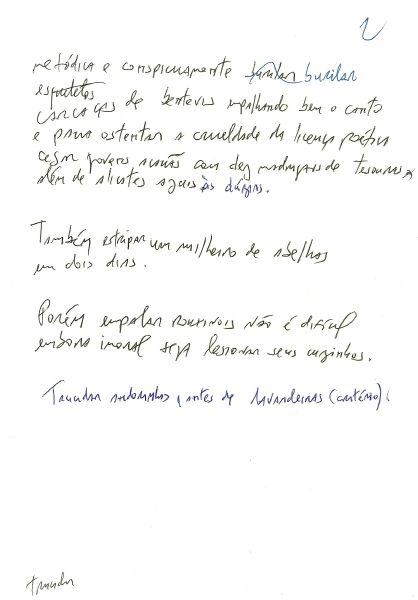 2
metódica e conspicuamente burilar burilar
esqueletos
carcaças de bentevis espalhando bem o canto
e para ostentar a crueldade da licença poética
cegar poveros acauãs com dez madrugadas de tesouras
além de alicates agudos às dúzias.
Também estripar um milheiro de abelhas
em dois dias.
Porém empalar rouxinóis não é difícil
embora imoral seja lesionar seus cuzinhos.
Trucidar andorinhas, antes de lavandeiras (cantério)
trucidar